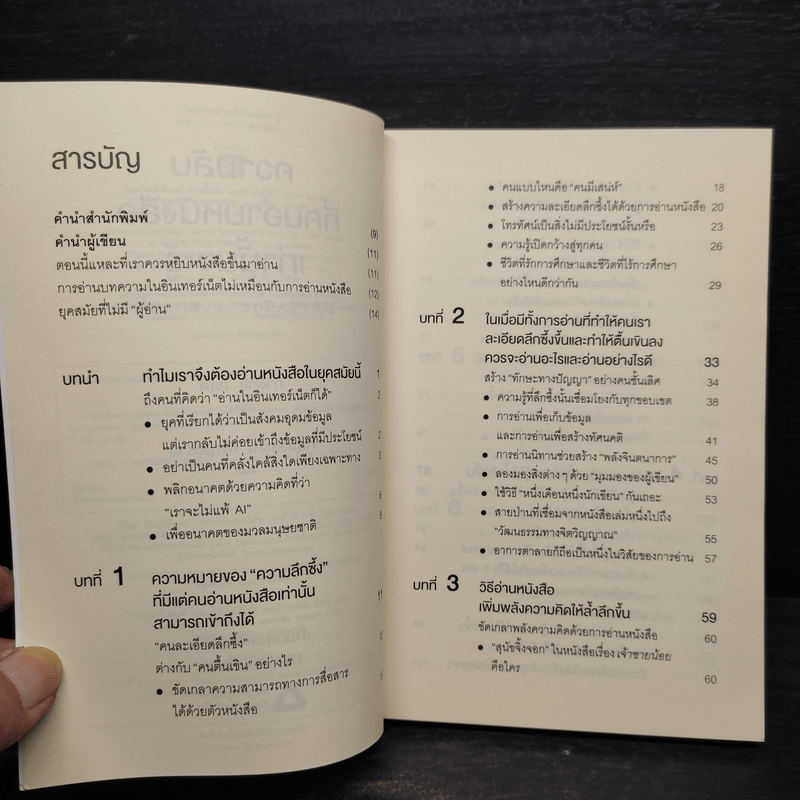 สารบัญ
คำนำสำนักพิมพ์ (9)
คำนำผู้เขียน (11)
ตอนนี้แหละที่เราควรหยิบหนังสือขึ้นมาอ่าน (11)
การอ่านบทความในอินเทอร์เน็ตไม่เหมือนกับการอ่านหนังสือ (12)
ยุคสมัยที่ไม่มี “ผู้อ่าน” (14)
บทนำ ทำไมเราจึงต้องอ่านหนังสือในยุคสมัยนี้ 1
ถึงคนที่คิดว่า “อ่านในอินเทอร์เน็ตก็ได้” 2
• ยุคที่เรียกได้ว่าเป็นสังคมอุดมข้อมูล
แต่เรากลับไม่ค่อยเข้าถึงข้อมูลที่มีประโยชน์ 2
• อย่าเป็นคนที่คลั่งไคล้สิ่งใดเพียงเฉพาะทาง 3
• พลิกอนาคตด้วยความคิดที่ว่า
“เราจะไม่แพ้ AI” 6
• เพื่ออนาคตของมวลมนุษยชาติ 8
บทที่ 1 ความหมายของ “ความลึกซึ้ง”
ที่มีแต่คนอ่านหนังสือเท่านั้น
สามารถเข้าถึงได้
“คนละเอียดลึกซึ้ง”
ต่างกับ “คนตื้นเขิน” อย่างไร
• ขัดเกลาความสามารถทางการสื่อสาร
ได้ด้วยตัวหนังสือ
• คนแบบไหนคือ “คนมีเสน่ห์” 18
• สร้างความละเอียดลึกซึ้งได้ด้วยการอ่านหนังสือ 20
• โทรทัศน์เป็นสิ่งไม่มีประโยชน์งั้นหรือ 23
• ความรู้เปิดกว้างสู่ทุกคน 26
• ชีวิตที่รักการศึกษาและชีวิตที่ไร้การศึกษา
อย่างไหนดีกว่ากัน 29
บทที่ 2 ในเมื่อมีทั้งการอ่านที่ทำให้คนเรา
ละเอียดลึกซึ้งขึ้นและทำให้ตื้นเขินลง
ควรจะอ่านอะไรและอ่านอย่างไรดี 33
สร้าง “ทักษะทางปัญญา” อย่างคนชั้นเลิศ 34
• ความรู้ที่ลึกซึ้งนั้นเชื่อมโยงกับทุกขอบเขต 38
• การอ่านเพื่อเก็บข้อมูล
และการอ่านเพื่อสร้างทัศนคติ 41
• การอ่านนิทานช่วยสร้าง “พลังจินตนาการ” 45
• ลองมองสิ่งต่าง ๆ ด้วย “มุมมองของผู้เขียน” 50
• ใช้วิธี “หนึ่งเดือนหนึ่งนักเขียน” กันเถอะ 53
• สายป่านที่เชื่อมจากหนังสือเล่มหนึ่งไปถึง
“วัฒนธรรมทางจิตวิญญาณ” 55
• อาการตาลายก็ถือเป็นหนึ่งในวิสัยของการอ่าน 57
บทที่ 3 วิธีอ่านหนังสือ
เพิ่มพลังความคิดให้ล้ำลึกขึ้น 59
ขัดเกลาพลังความคิดด้วยการอ่านหนังสือ 60
• “สุนัขจิ้งจอก” ในหนังสือเรื่อง เจ้าชายน้อย
คือใคร 60